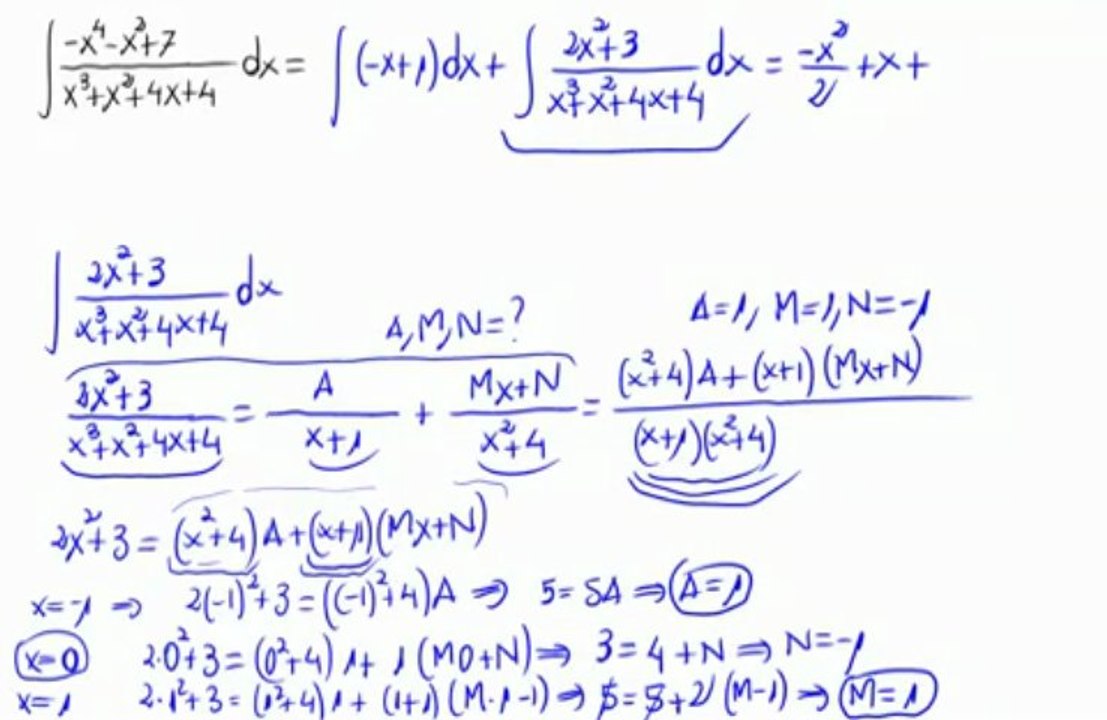 ∫ (-x⁴-x²+7)/(x³+x²+4x+4) dx = ∫ (-x+1)dx + ∫ (2x²+3)/(x³+x²+4x+4) dx = -x²/2 + x +
∫ (2x²+3)/(x³+x²+4x+4) dx
A, M, N = ?
A=1, M=1, N=-1
(2x²+3)/(x³+x²+4x+4) = A/(x+1) + (Mx+N)/(x²+4) = ((x²+4)A+(x+1)(Mx+N))/((x+1)(x²+4))
2x²+3 = (x²+4)A+(x+1)(Mx+N)
x=-1 ⇒ 2(-1)²+3=((-1)²+4)A ⇒ 5=5A ⇒ A=1
x=0 2·0²+3=(0²+4)1+1(M0+N) ⇒ 3=4+N ⇒ N=-1
x=1 2·1²+3=(1²+4)1+(1+1)(M·1-1) ⇒ 5=5+2(M-1) ⇒ M=1